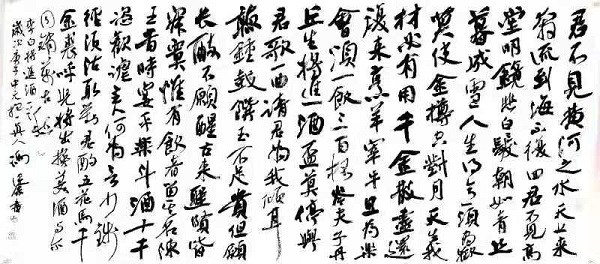 君不見黄河之水天上来
奔流到海不復回君不見高
堂明鏡悲白髮朝如青丝
暮成雪人生得意須盡歡
莫使金樽空對月天生我
材必有用千金散盡還
復来烹羊宰牛且為樂
會須一飲三百杯岑夫子丹
丘生将進酒杯莫停與
君歌一曲請君為我傾耳
聽鐘鼓饌玉不足貴但願
长醉不願醒古来聖賢皆
寂寞惟有飲者留其名陳
王昔時宴平樂斗酒十千
恣歡謔主人何為言少錢
徑須沽取對君酌五花馬千
金裘呼兒将出換美酒與尔
同銷萬古愁
李白将進酒一首
歲次庚子中元